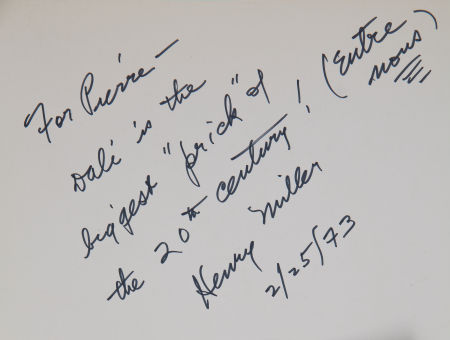 For Pierre —
Dalí is the
biggest "prick" of
the 20th century! (Entre
nous)
Henry Miller
2/25/73